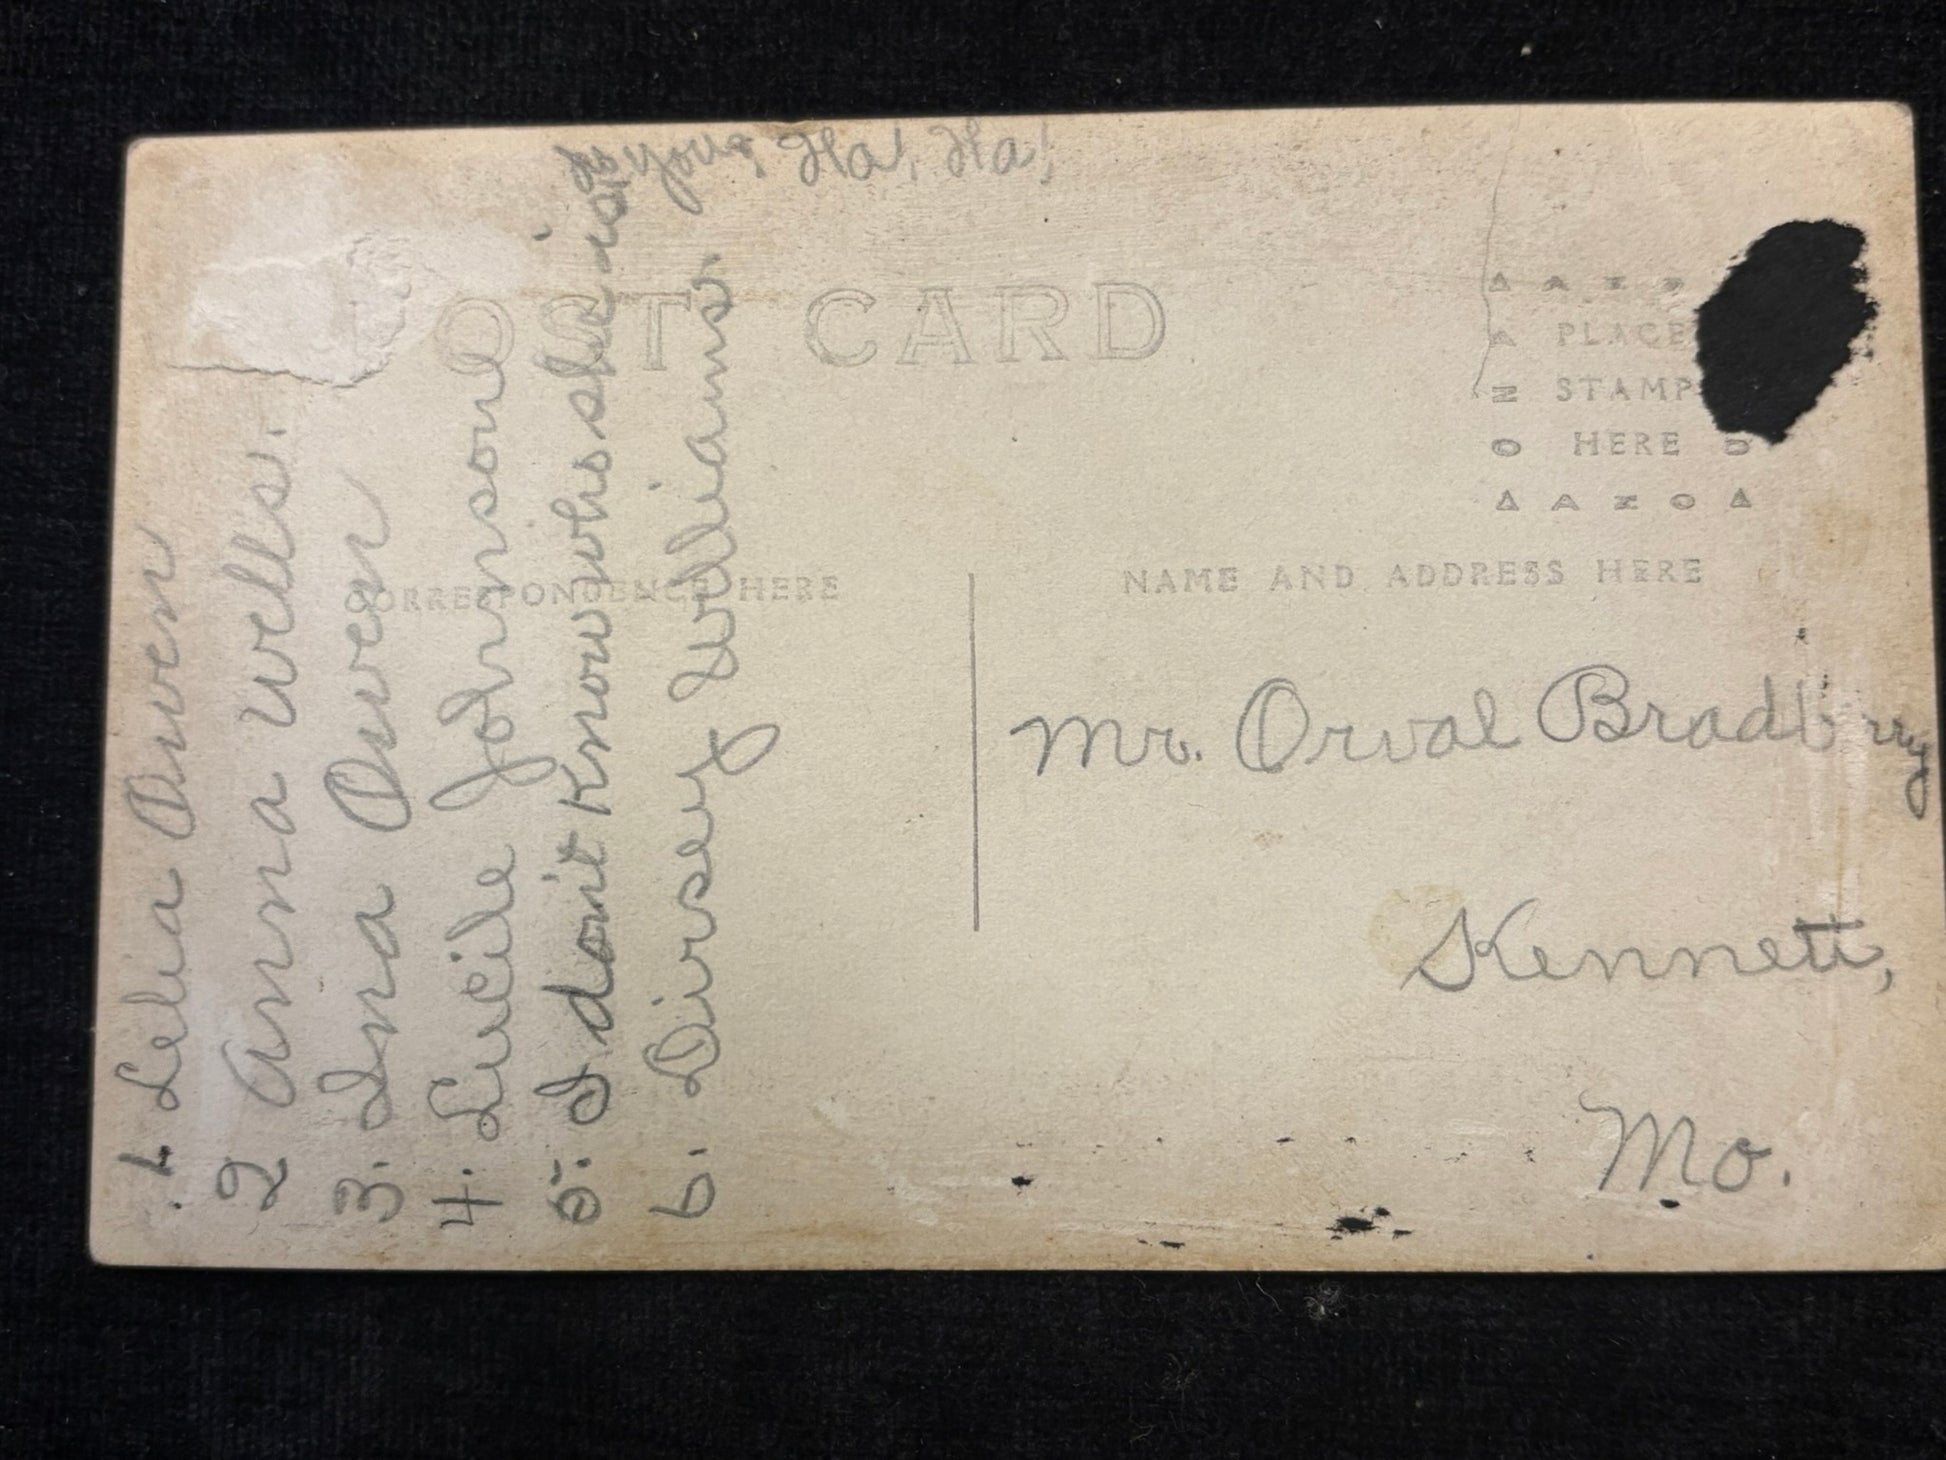 POST CARD
CORRESPONDENCE HERE
NAME AND ADDRESS HERE
PLACE
STAMP
HERE
A Z O
1. Lelia Owen
2 Anna Wells.
3. Ina Owen
4. Lucile Johnson
5. I don't Know who she is
you, Ha! Ha!
6. Dirsey Williams.
Mr. Orval Bradbury
Kennett,
Mo.